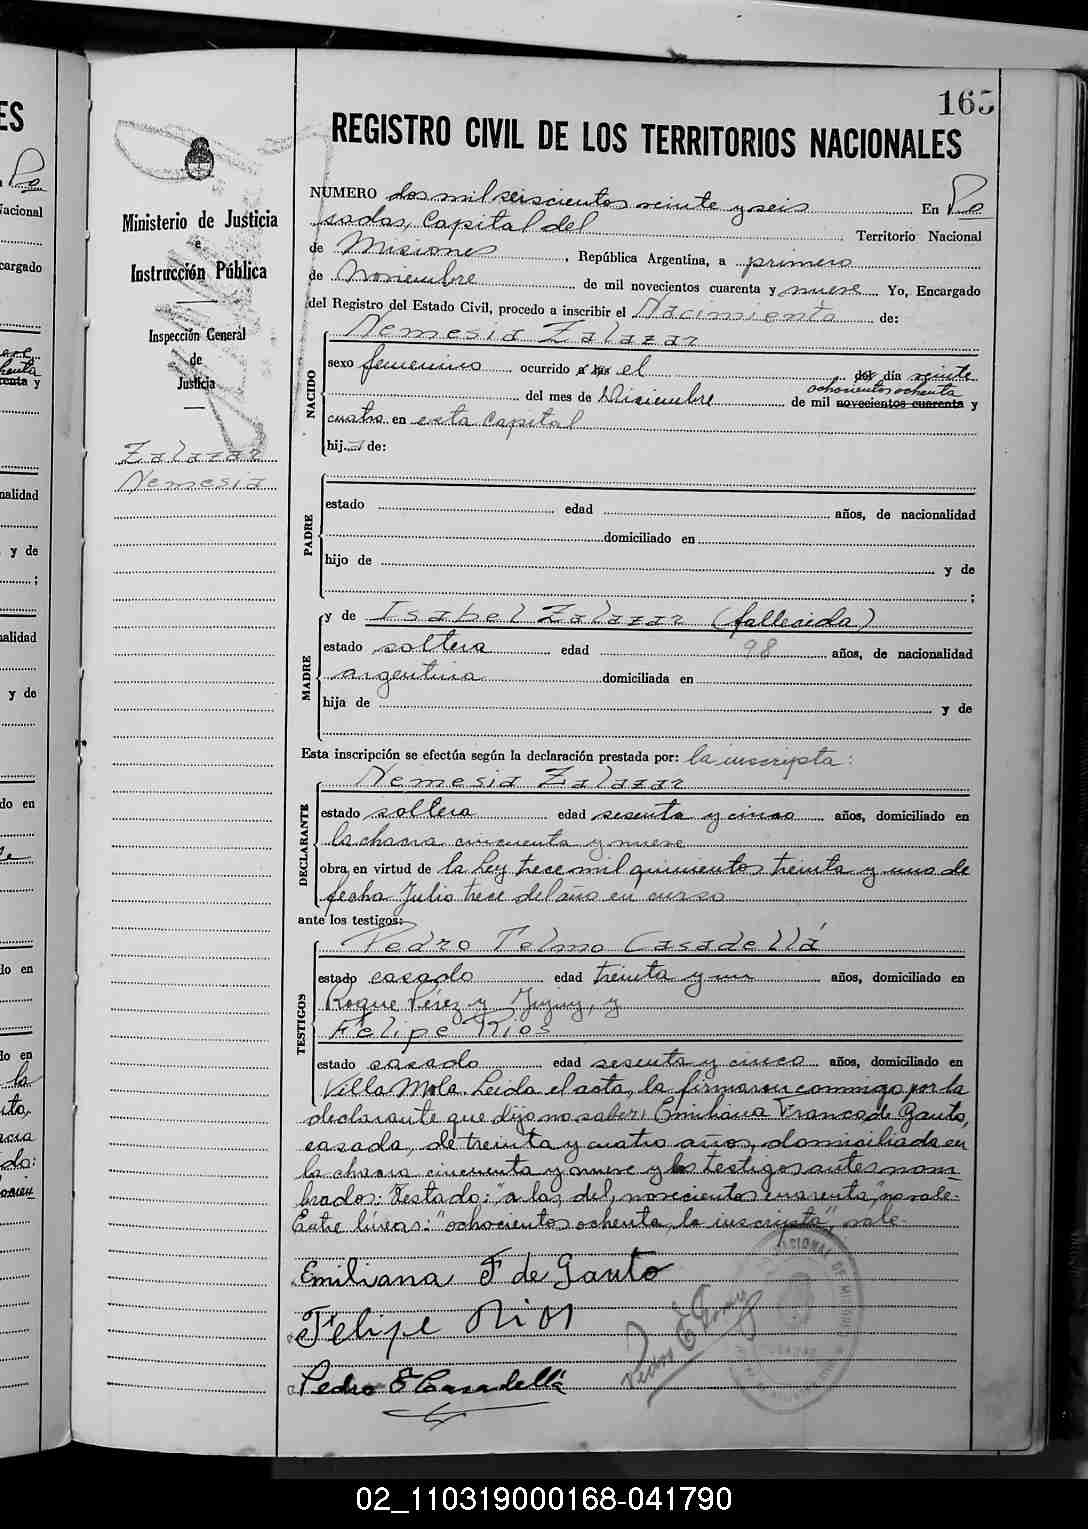 165
REGISTRO CIVIL DE LOS TERRITORIOS NACIONALES
Ministerio de Justicia
e
Instrucción Pública
Inspección General
de
Justicia
Zalazar
Nemesia
NUMERO dos mil seiscientos veinte y seis En Po
sadas, Capital del Territorio Nacional
de Misiones, República Argentina, a primero
de Noviembre de mil novecientos cuarenta y nueve Yo, Encargado
del Registro del Estado Civil, procedo a inscribir el Nacimiento de:
Nemesia Zalazar
NACIDO
sexo femenino ocurrido a las el del día veinte
ochocientos ochenta
del mes de Diciembre de mil novecientos cuarenta y
cuatro en esta Capital
hij de:
PADRE
estado edad años, de nacionalidad
domiciliado en
hijo de y de
;
MADRE
y de Isabel Zalazar (fallecida)
estado soltera edad 98 años, de nacionalidad
argentina domiciliada en
hija de y de
Esta inscripción se efectúa según la declaración prestada por: la inscripta:
Nemesia Zalazar
DECLARANTE
estado soltera edad sesenta y cinco años, domiciliado en
la chacra cincuenta y nueve
obra en virtud de la Ley trece mil quinientos treinta y uno de
fecha Julio trece del año en curso
ante los testigos:
Pedro Telmo Casadellá
TESTIGOS
estado casado edad treinta y un años, domiciliado en
Roque Pérez y Jujuy, y
Felipe Rios
estado casado edad sesenta y cinco años, domiciliado en
Villa Mola. Leida el acta, la firmaron conmigo, por la
declarante que dijo no saber: Emiliana Franco de Gauto,
casada, de treinta y cuatro años, domiciliada en
la chacra cincuenta y nueve y los testigos antes nom-
brados: Testado: "a las, del, novecientos cuarenta," no vale.
Entre líneas: "ochocientos ochenta, la inscripta", vale.
Emiliana F de Gauto
Felipe Rios
Pedro E Casadellá
02_110319000168-041790